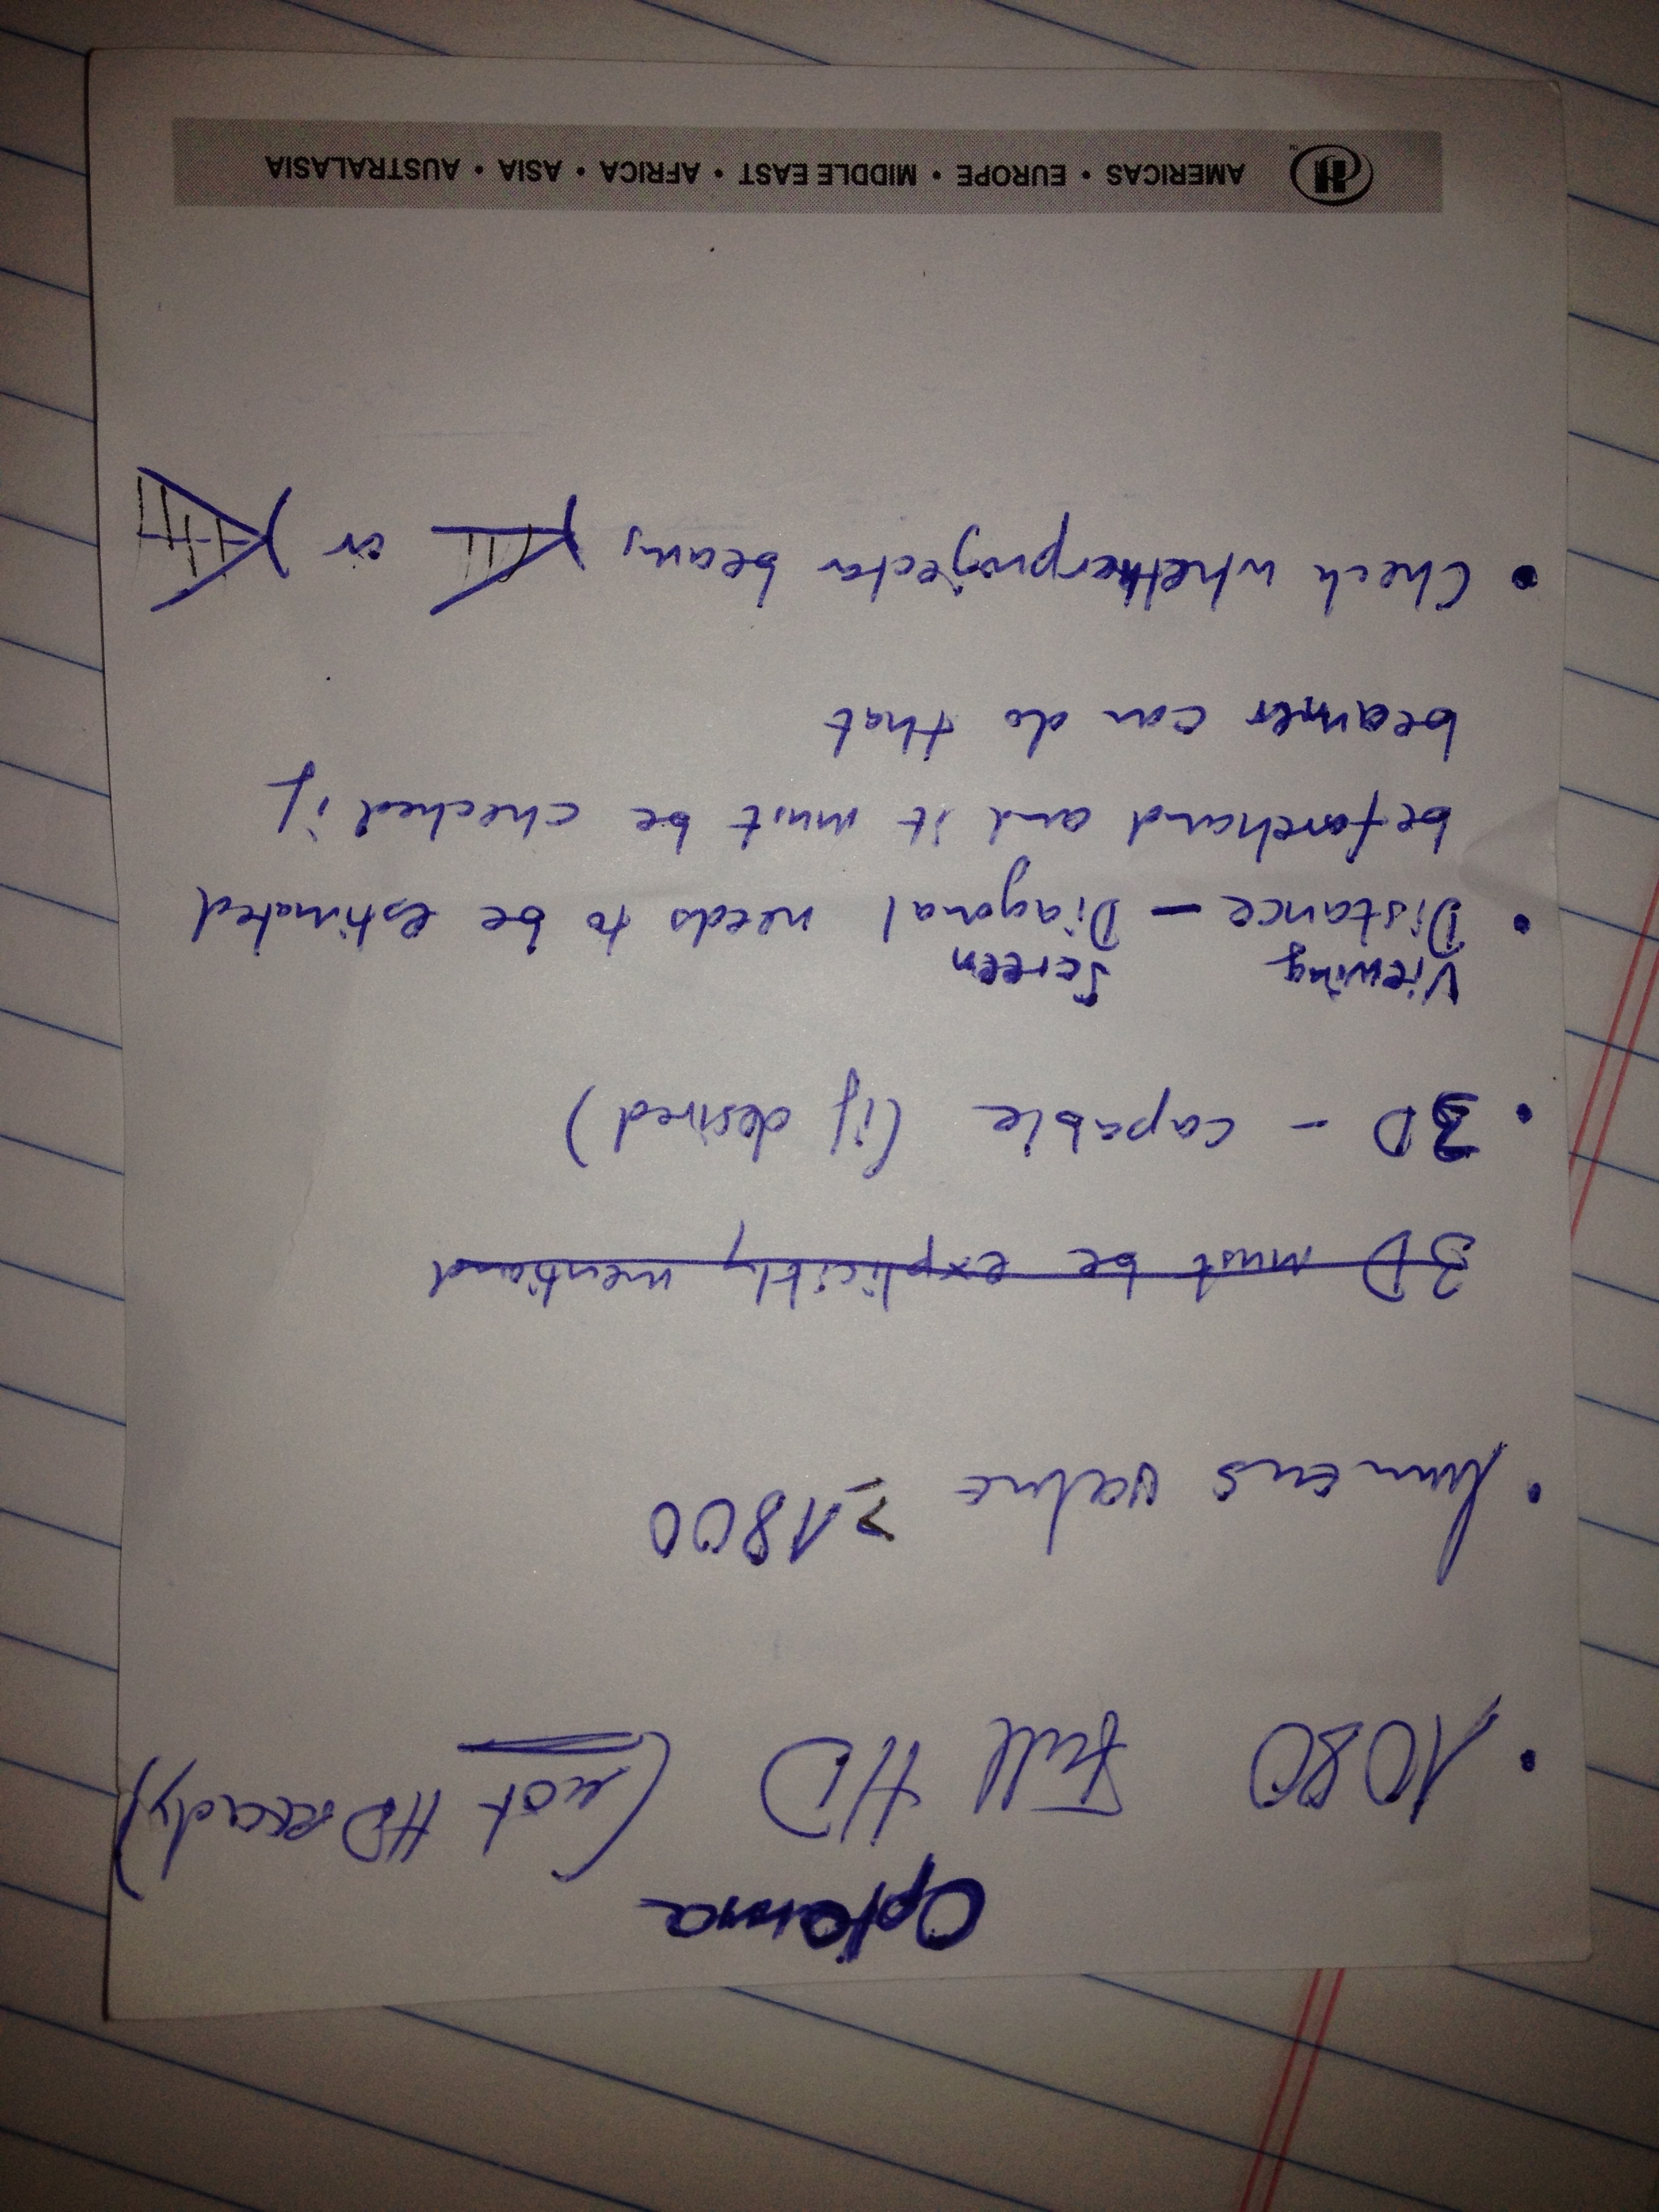 Optoma
• 1080 Full HD (not HD ready)
• Lumens value ≥ 1800
3D must be explicitly mentioned
• 3D - capable (if desired)
Viewing Screen
• Distance — Diagonal needs to be estimated
beforehand and it must be checked if
beamer can do that
• Check whether projector beams or
AMERICAS • EUROPE • MIDDLE EAST • AFRICA • ASIA • AUSTRALASIA